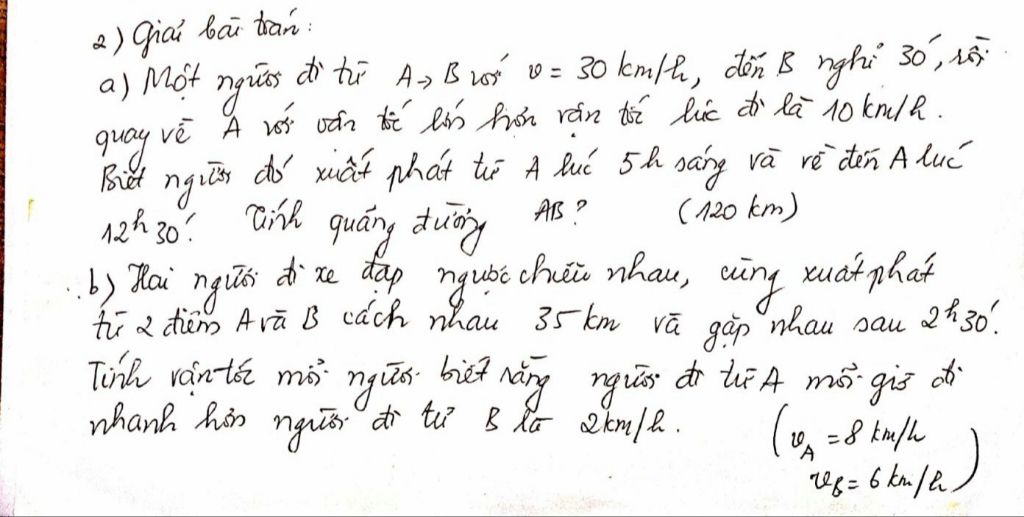 2) Giải bài toán:
a) Một người đi từ A → B với v = 30 km/h, đến B nghỉ 30', rồi
quay về A với vận tốc lớn hơn vận tốc lúc đi là 10 km/h.
Biết người đó xuất phát từ A lúc 5h sáng và về đến A lúc
12h 30'. Tính quãng đường AB? (120 km)
b) Hai người đi xe đạp ngược chiều nhau, cùng xuất phát
từ 2 điểm A và B cách nhau 35 km và gặp nhau sau 2h 30'.
Tính vận tốc mỗi người biết rằng người đi từ A mỗi giờ đi
nhanh hơn người đi từ B là 2km/h.
(v_A = 8 km/h
v_B = 6 km/h)